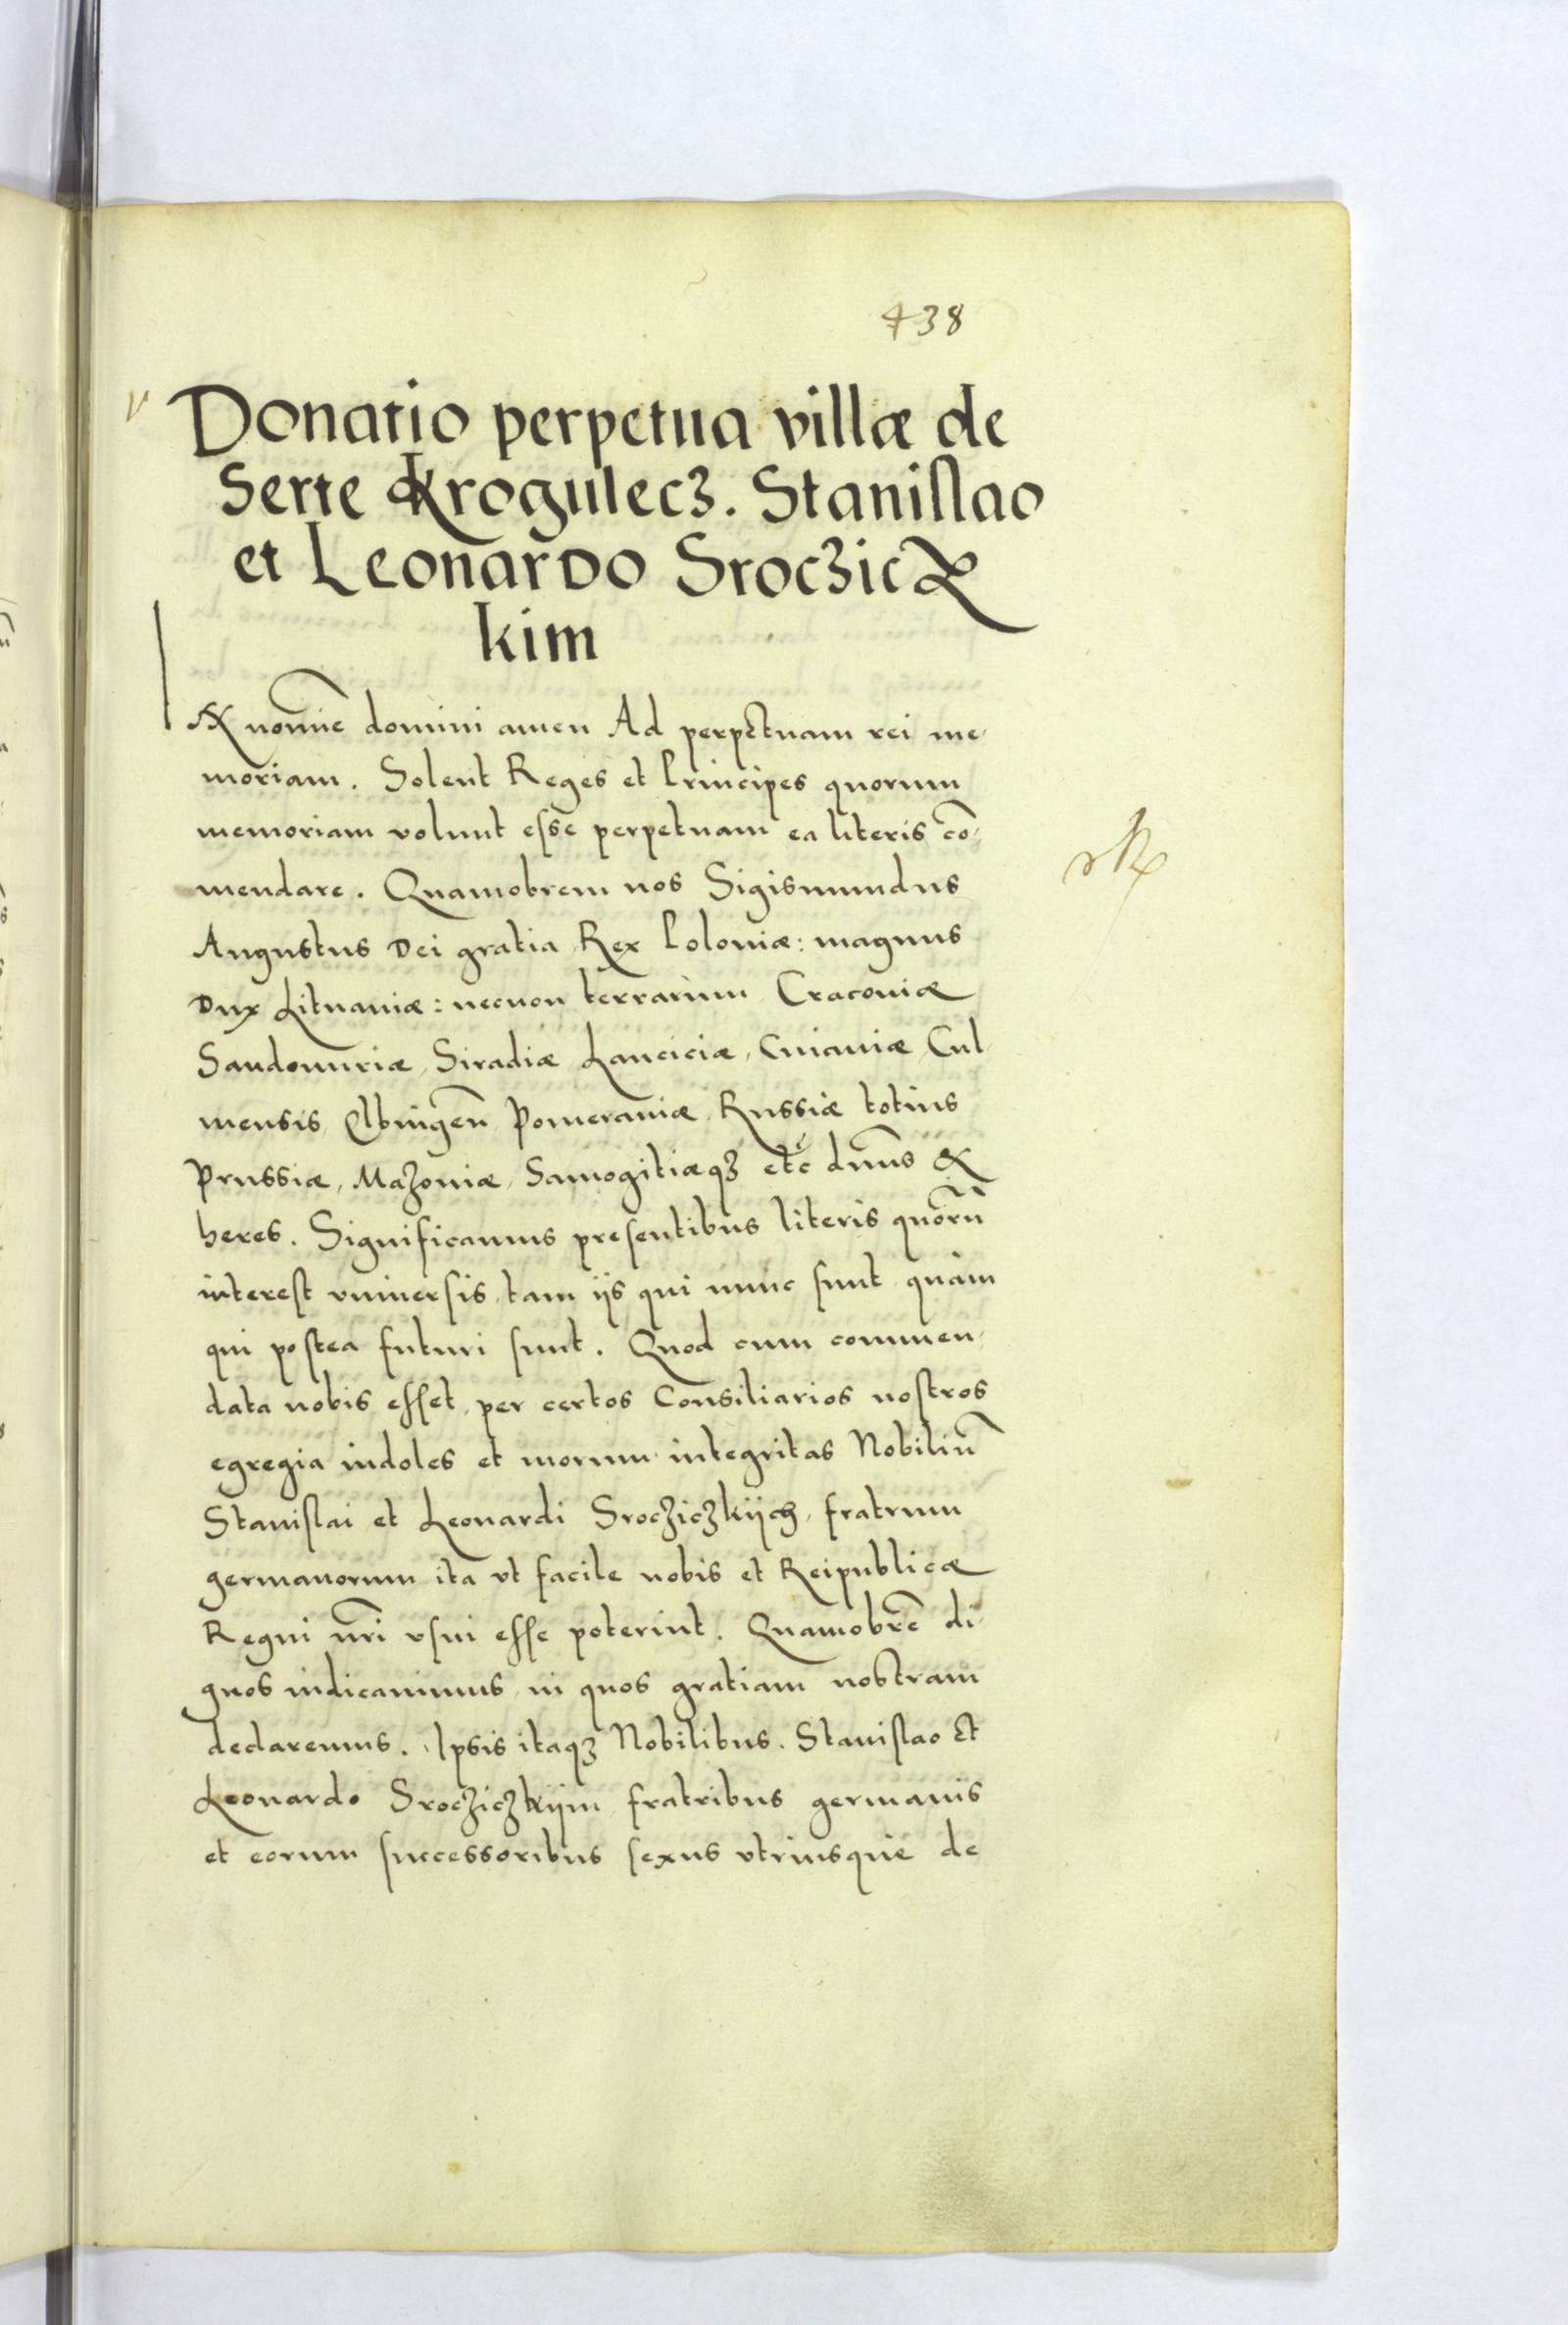 438
Donatio perpetua villæ de
serte Krogulecz. Stanislao
et Leonardo Sroczicz
kim
IN nomīe domini amen Ad perpetuam rei me
moriam. Solent Reges et Principes quorum
memoriam volunt esse perpetuam ea literis cō
mendare. Quamobrem nos Sigismundus
Augustus Dei gratia Rex Poloniæ: magnus
Dux Lituaniæ: necnon terrarum Cracoviæ
Sandomiriæ, Siradiæ Lanciciæ, Cuiaviæ Cul
mensis Elbingen̄ Pomeraniæ Russiæ totius
Prussiæ, Mazoviæ, Samogitiæqꝫ etc̄ dn̄us &
heres. Significamus presentibus literis quorū
interest vniversis, tam iis qui nunc sunt quàm
qui postea futuri sunt. Quod cum commen
data nobis esset, per certos Consiliarios nostros
egregia indoles et morum integritas Nobiliū
Stanislai et Leonardi Srocziczkiych, fratrum
germanorum ita vt facile nobis et Reipublicæ
Regni nr̄i vsui esse poterint. Quamobrē di
gnos iudicavimus in quos gratiam nostram
declaremus. Ipsis itaqꝫ Nobilibus. Stanislao et
Leonardo Srocziczkiym fratribus germanis
et eorum successoribus sexus vtriusque de